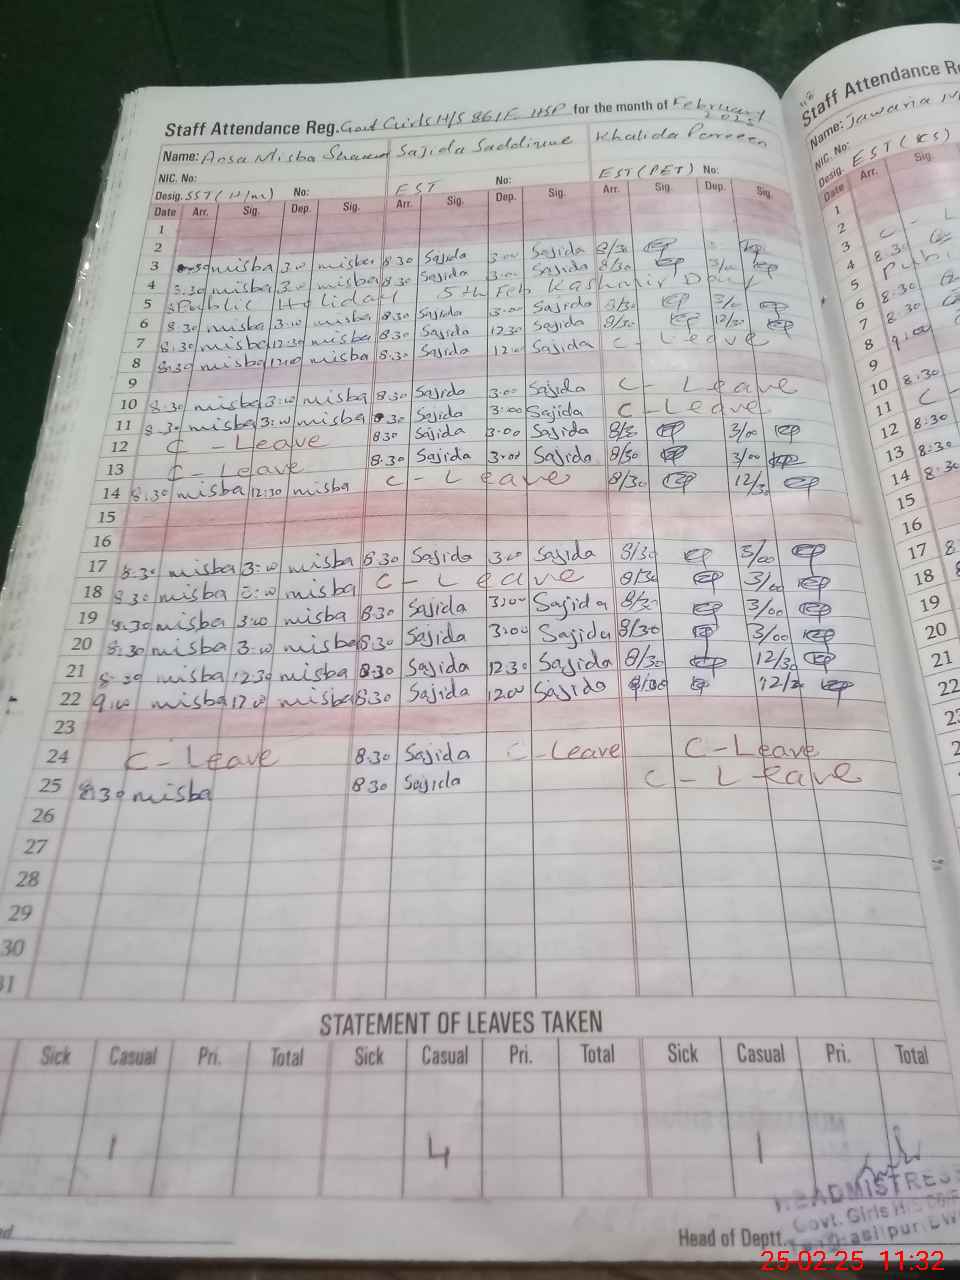 Staff Attendance Reg. Govt Girls H/S 861F HSP for the month of February 2025
Name: Ansa Misba Sajida Saddique Khalida Parveen
NIC. No:
Desig. SST No: EST No: EST (PET) No:
Date Arr. Sig. Dep. Sig. Arr. Sig. Dep. Sig. Arr. Sig. Dep. Sig.
1
2
3 misba 3:00 misba 8.30 Sajida 3:00 Sajida 8/30
4 8.30 misba 3:00 misba 8.30 Sajida 3:00 Sajida 8/30 3/00
5 Public Holiday 5th Feb Kashmir Day
6 8.30 misba 3:00 misba 8.30 Sajida 3:00 Sajida 8/30 3/
7 8.30 misba 12:30 misba 8.30 Sajida 12.30 Sajida 8/30 12/30
8 8.30 misba 12:00 misba 8.30 Sajida 12:00 Sajida C - Leave
9
10 8.30 misba 3:00 misba 8.30 Sajida 3:00 Sajida C - Leave
11 8.30 misba 3:00 misba 8.30 Sajida 3:00 Sajida C - Leave
12 C - Leave 8.30 Sajida 3.00 Sajida 8/30 3/00
13 C - Leave 8.30 Sajida 3.00 Sajida 8/30 3/00
14 8.30 misba 12:30 misba C - Leave 8/30 12/30
15
16
17 8.30 misba 3:00 misba 8.30 Sajida 3:00 Sajida 8/30 3/00
18 8.30 misba 3:00 misba C - Leave 8/30 3/00
19 8.30 misba 3:00 misba 8.30 Sajida 3:00 Sajida 8/30 3/00
20 8:30 misba 3:00 misba 8.30 Sajida 3:00 Sajida 8/30 3/00
21 8:30 misba 12:30 misba 8.30 Sajida 12.30 Sajida 8/30 12/30
22 9:00 misba 12:00 misba 8.30 Sajida 12:00 Sajida 8/30 12/
23
24 C - Leave 8.30 Sajida C - Leave C - Leave
25 8.30 misba 8.30 Sajida C - Leave
26
27
28
29
30
31
STATEMENT OF LEAVES TAKEN
Sick Casual Pri. Total Sick Casual Pri. Total Sick Casual Pri. Total
1 4 1
HEADMISTRESS
Govt. Girls H/S
Head of Deptt.
Staff Attendance
Name: Jawaria
NIC. No:
Desig. EST
Date Arr. Sig.
1
2
3 C - L
4 8.30
5 Publi
6 8:30
7 8.30
8 9:00
9
10 8.30
11 C
12 8.30
13 8.30
14 8.30
15
16
17 8
18 8
19
20
21
22
25-02-25 11:32